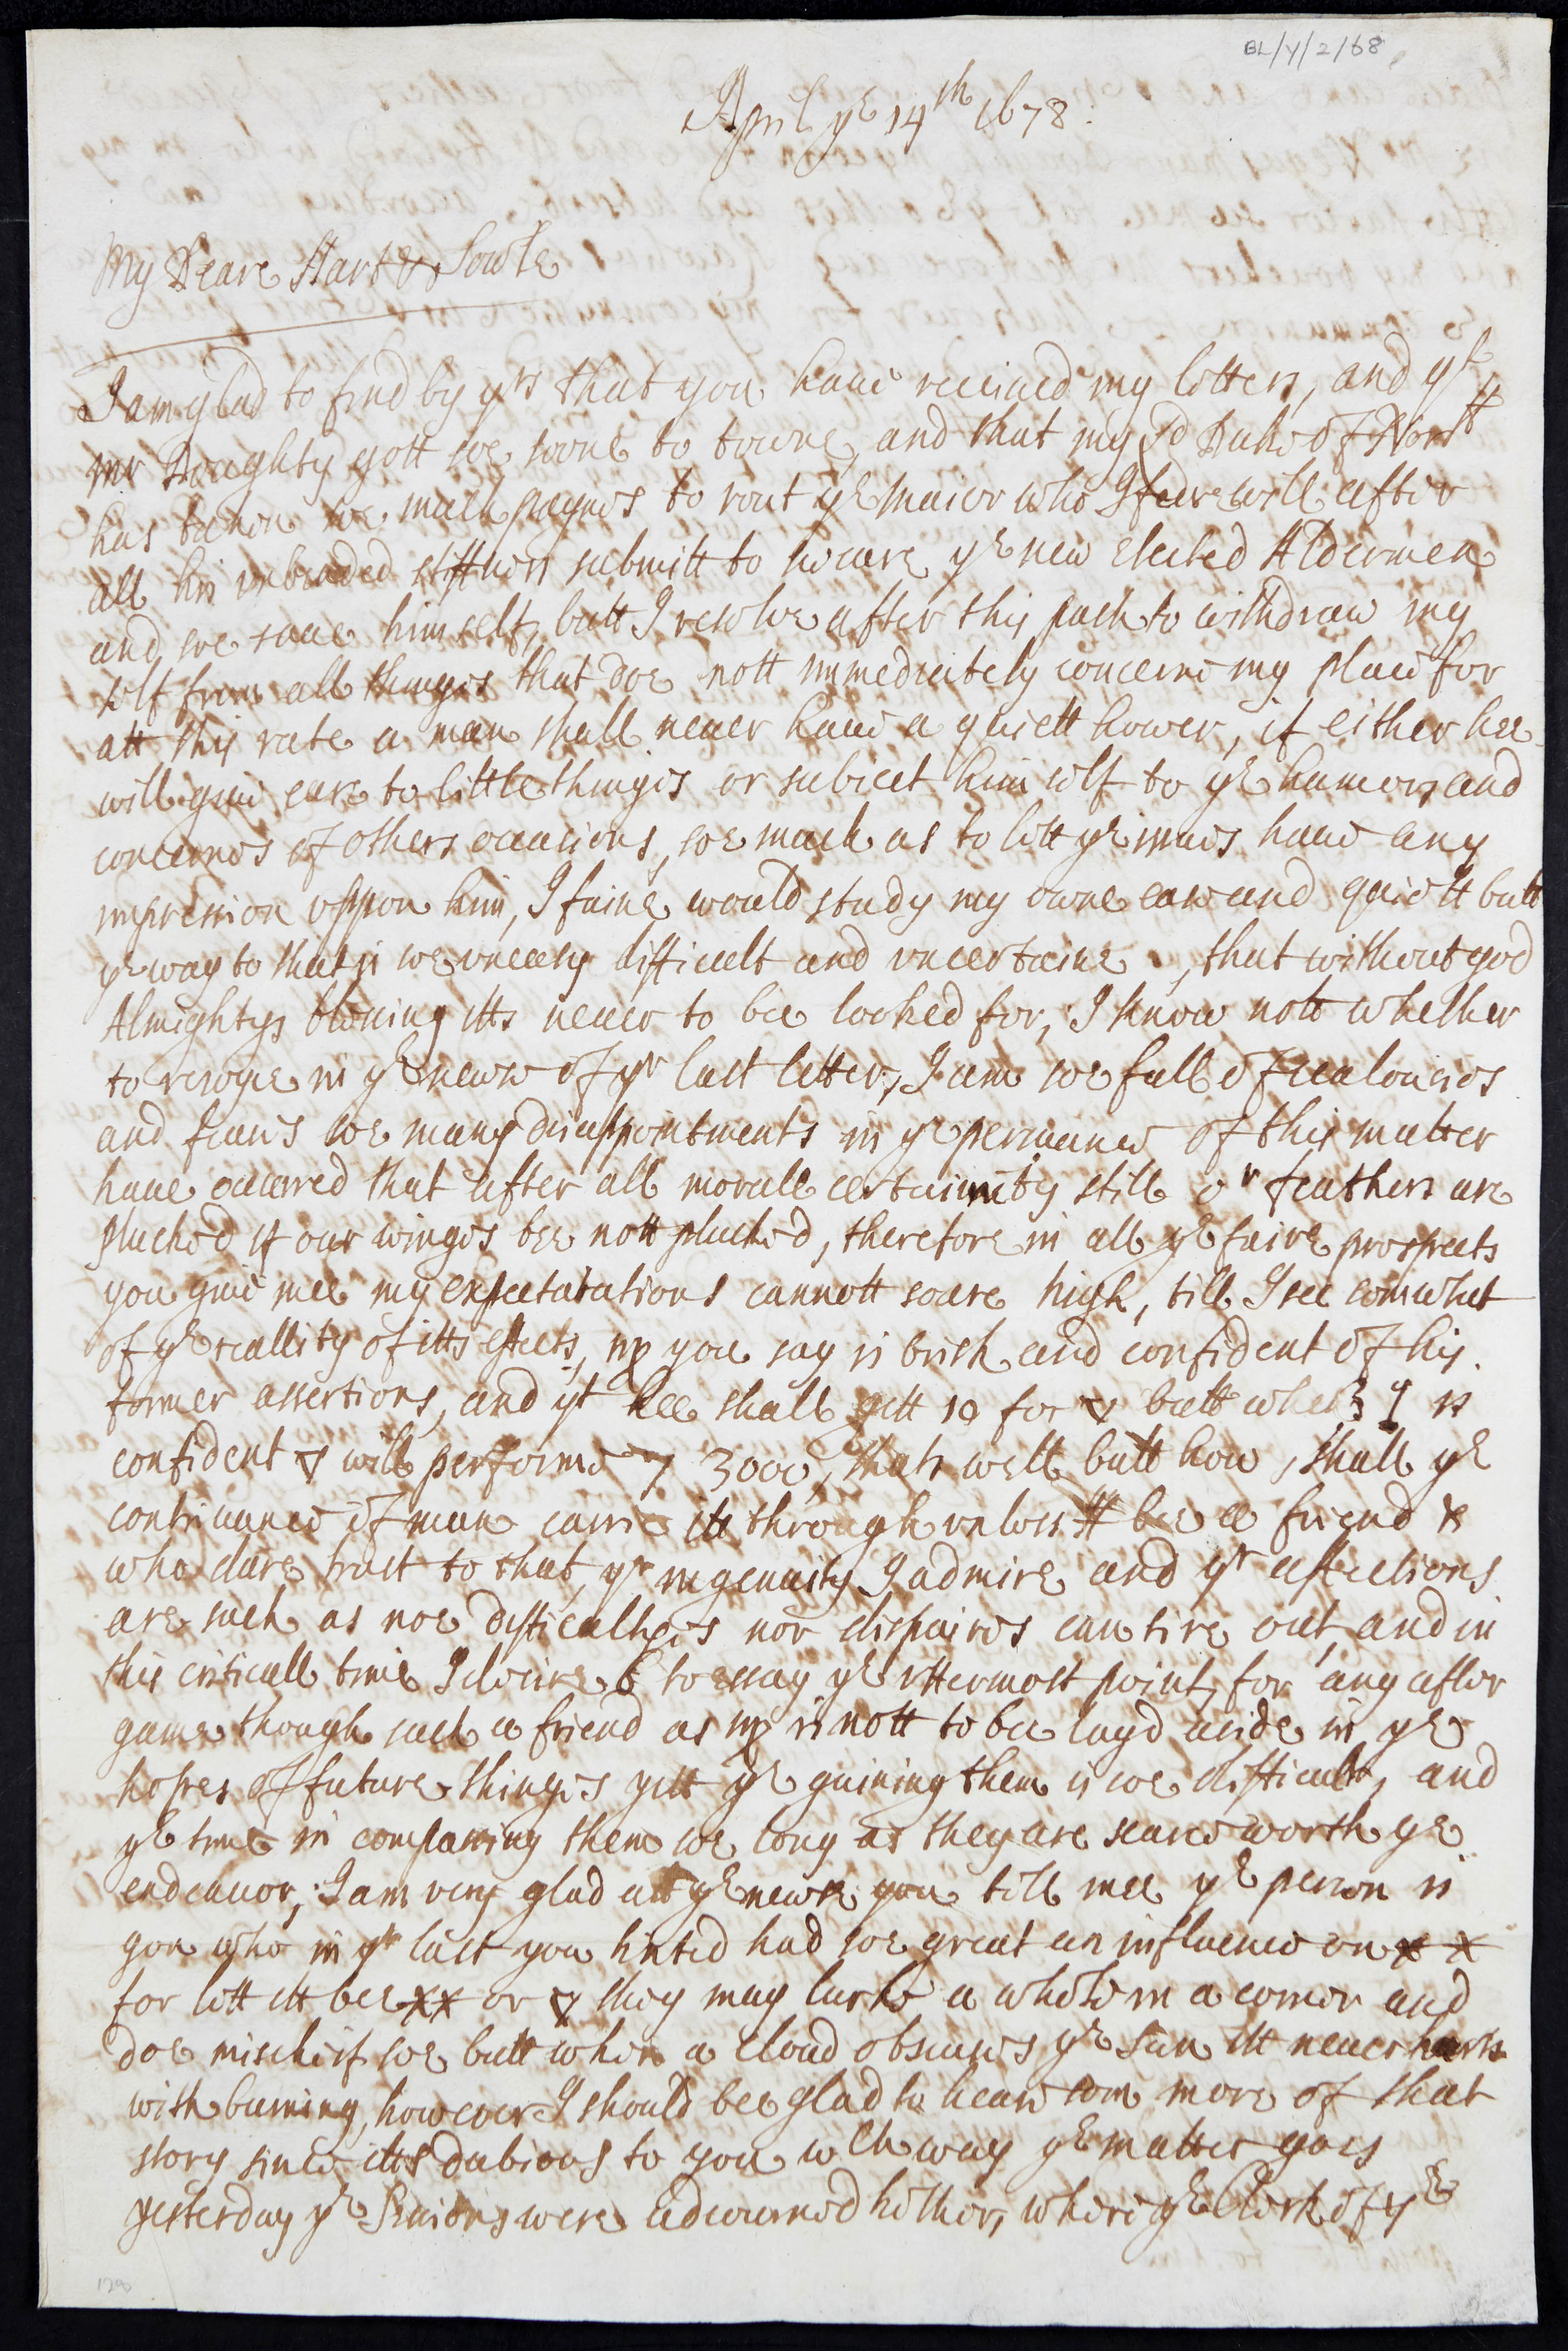 BL/Y/2/68
April ye 14th 1678:
My Deare Hart & Sowle
I am glad to find by yrs that you haue receiued my letters, and yt
mr Doughty gott soe soone to towne, and that my Ld Duke of Norff
has taken soe much paynes to rout ye maior who I feare will after
all his unbended stiffness submitt to sweare ye new elected Aldermen
and soe saue himself, butt I resolve after this push to withdraw my
self from all things that doe nott immediately concerne my place for
att this rate a man shall neuer haue a quiett hower, if either hee
will giue eare to little things or subiect him self to ye humors and
concernes of others occasions, soe much as to lett ye haue any
impression uppon him, I faine would study my owne ease and quiett butt
ye way to that is soe difficult and uncertaine, that without god
Almightys blessing itts neuer to bee looked for, I know nott whether
to reioyce in ye news of yr last letter, I am soe full of iealousies
and feares soe many disappointments in ye of this matter
haue occurred that after all morall certainity still or feathers are
plucked if our winges bee nott plucked, therefore in all ye faire prospects
you giue mee my expectatations cannott soare high, till I see somwhat
of ye reallity of itts effects, you say is brisk and confident of his
former assertions, and yt hee shall gett 10 for butt is
confident will performe 7 3000, thats well butt how shall ye
continuance of man carrie itt through unless bee a friend
who dare trust to that, yr ingenuity I admire and yr affections
are such as noe difficultyes nor dispaires can tire out, and in
this criticall time I desire 6 to essay ye uttermost point, for any after
game though such a friend as is nott to bee layd aside in ye
hopes of future things yett ye gaining them is soe difficult, and
ye time in compassing them soe long as they are scarce worth ye
endeauor, I am very glad att ye news you tell mee ye person is
gon who in yr last you hinted had soe great an influence on x x
for lett itt bee xx or they may lurke a while in a corner and
doe mischeif soe butt when a cloud obscures ye sun itt neuer hurts
with burning, however I should bee glad to heare som more of that
story since itts dubious to you wch way ye matter goes
yesterday ye Sessions were adeourned hither, where ye Clerk of ye